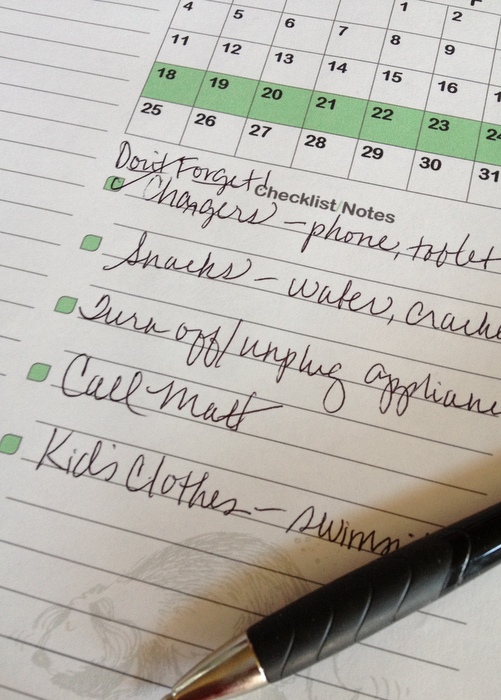 1 2
4 5 6 7 8 9
11 12 13 14 15 16
18 19 20 21 22 23 24
25 26 27 28 29 30 31
Don't Forget!
Checklist/Notes
Chargers - phone, tablet
Snacks - water, cracke
Turn off/unplug applianc
Call Matt
Kid's Clothes - swims